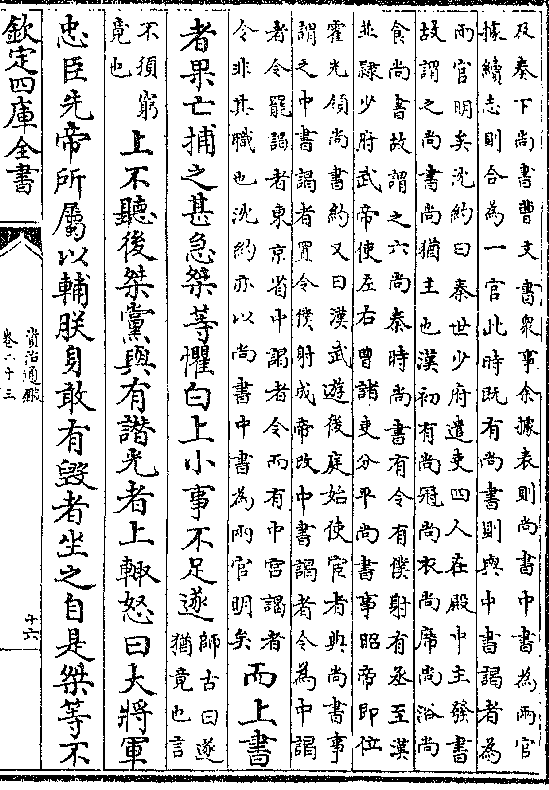 及秦下尚書曹文書衆事余據表則尚書中書為兩官
據續志則合為一官此時既有尚書則與中書謁者為
兩官明矣沈約曰秦世少府遣吏四人在殿中主發書
故謂之尚書尚猶主也漢初有尚冠尚衣尚席尚浴尚
食尚書故謂之六尚秦時尚書有令有僕射有丞至漢
並隸少府武帝使左右曹諸吏分平尚書事昭帝即位
霍光領尚書約又曰漢武遊後庭始使宦者典尚書事
謂之中書謁者置令僕射成帝改中書謁者令為中謁
者令罷謁者東京省中謁者令而有中宮謁者
令非其職也沈約亦以尚書中書為兩官明矣
而上書
者果亡捕之甚急桀等懼白上小事不足遂
師古曰遂
猶竟也言
不須窮
竟也
上不聽後桀黨與有譖光者上輒怒曰大將軍
忠臣先帝所屬以輔朕身敢有毁者坐之自是桀等不
欽定四庫全書
資治通鑑
卷二十三
十六